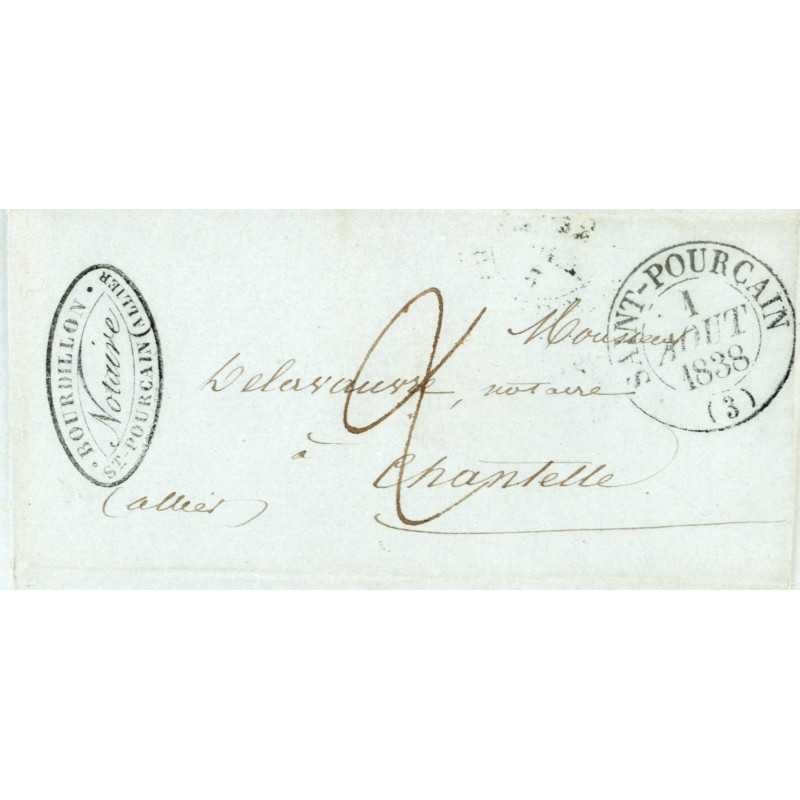 · BOURDILLON ·
Notaire
ST-POURCAIN (ALLIER
SAINT-POURCAIN
1
AOUT
1838
(3)
2
Monsieur
Delavauvre, notaire
à
Chantelle
(allier)